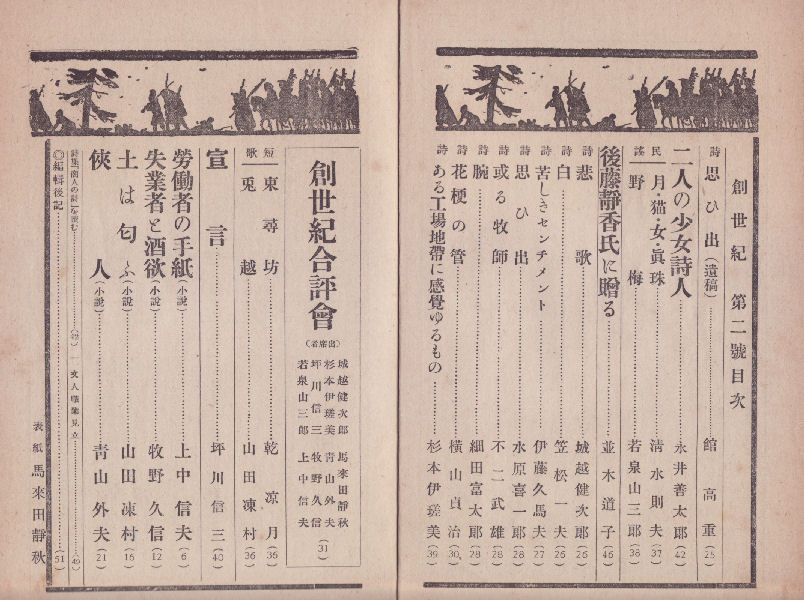 創世紀 第二號目次
詩 思ひ出(遺稿) 館高重(25)
二人の少女詩人 永井善太郎(42)
民謠 月・猫・女・眞珠 清水則夫(37)
野梅 若泉山三郎(38)
後藤靜香氏に贈る 並木道子(46)
詩 悲歌 城越健次郎(26)
詩 白 笠松一夫(26)
詩 苦しきセンチメント 伊藤久馬夫(27)
詩 思ひ出 水原喜一郎(28)
詩 或る牧師 不二武雄(28)
詩 腕 細田富太郎(28)
詩 花梗の管 横山貞治(30)
詩 ある工場地帶に感覺ゆるもの 杉本伊瑳美(39)
創世紀合評會 (出席者)
城越健次郎 馬來田靜秋
杉本伊瑳美 青山外夫
坪川信三 牧野久信
若泉山三郎 上中信夫
(31)
短歌 東尋坊 乾凉月(36)
兎越 山田凍村(36)
宣言 坪川信三(40)
勞働者の手紙(小説) 上中信夫(6)
失業者と酒欲(小説) 牧野久信(12)
土は匂ふ(小説) 山田凍村(16)
俠人(小説) 青山外夫(21)
(49)
◎編輯後記 (51)
表紙 馬來田靜秋